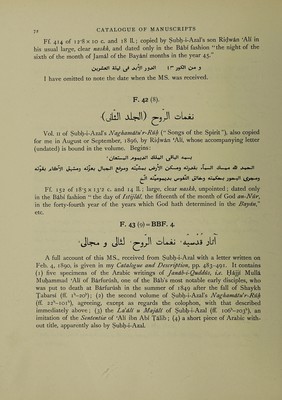 72 CATALOGUE OF MANUSCRIPTS
Ff. 414 of 12·8 × 10 c. and 18 ll.; copied by Ṣubḥ-i-Azal's son Riḍwán ‘Alí in
his usual large, clear naskh, and dated only in the Bábí fashion "the night of the
sixth of the month of Jamál of the Bayání months in the year 45."
I have omitted to note the date when the MS. was received.
F. 42 (8).
نغمات الرّوح (الجلد الثّانی)
Vol. II of Ṣubḥ-i-Azal's Naghamátu'r-Rúḥ ("Songs of the Spirit"), also copied
for me in August or September, 1896, by Riḍwán ‘Alí, whose accompanying letter
(undated) is bound in the volume. Begins:
بسـه الباقی الملك الديموم المستعان
Ff. 152 of 18·5 × 13·2 c. and 14 ll.; large, clear naskh, unpointed; dated only
in the Bábí fashion "the day of Istijlál, the fifteenth of the month of God an-Núr,
in the forty-fourth year of the years which God hath determined in the Bayán,"
etc.
F. 43 (9) = BBF. 4.
آثار قدسيّه، نغمات الرّوح، لئالی و مجالی
A full account of this MS., received from Ṣubḥ-i-Azal with a letter written on
Feb. 4, 1890, is given in my Catalogue and Description, pp. 483–491. It contains
(1) five specimens of the Arabic writings of Janáb-i-Quddús, i.e. Ḥájjí Mullá
Muḥammad ‘Alí of Bárfurúsh, one of the Báb's most notable early disciples, who
was put to death at Bárfurúsh in the summer of 1849 after the fall of Shaykh
Ṭabarsí (ff. 1ᵇ–20ᵇ); (2) the second volume of Ṣubḥ-i-Azal's Naghamátu'r-Rúḥ
(ff. 22ᵇ–101ᵇ), agreeing, except as regards the colophon, with that described
immediately above; (3) the La'álí u Majálí of Ṣubḥ-i-Azal (ff. 106ᵇ–203ᵇ), an
imitation of the Sententiæ of ‘Alí ibn Abí Ṭálib; (4) a short piece of Arabic with-
out title, apparently also by Ṣubḥ-i-Azal.